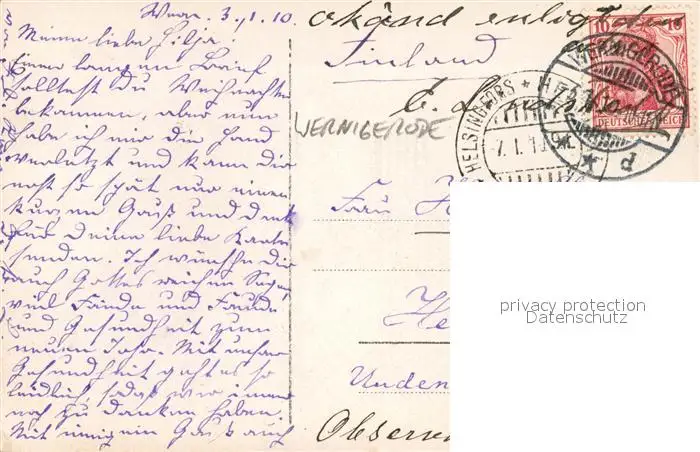 Wern. 3./1. 10.
Meine liebe Hilja.
Einen langen Brief
solltest Du Weihnachten
bekommen, aber nun
habe ich mir die Hand
verletzt und kann Dir
noch so spät nur einen
kurzen Gruß und Dank
für Deine liebe Karte
senden. Ich wünsche Dir
auch Gottes reichen Segen,
viel Friede und Freude
und Gesundheit zum
neuen Jahr. Mit unserer
Gesundheit geht es so
leidlich, sodaß wir immer
noch zu danken haben.
Mit innigem Gruß auch
okänd enligt den
Finland
WERNIGERODE
HELSINGFORS
7. I. 1
WERNIGERODE
d
10 10
DEUTSCHES REICH
Frau H
He
Unden
Observ
privacy protection
Datenschutz